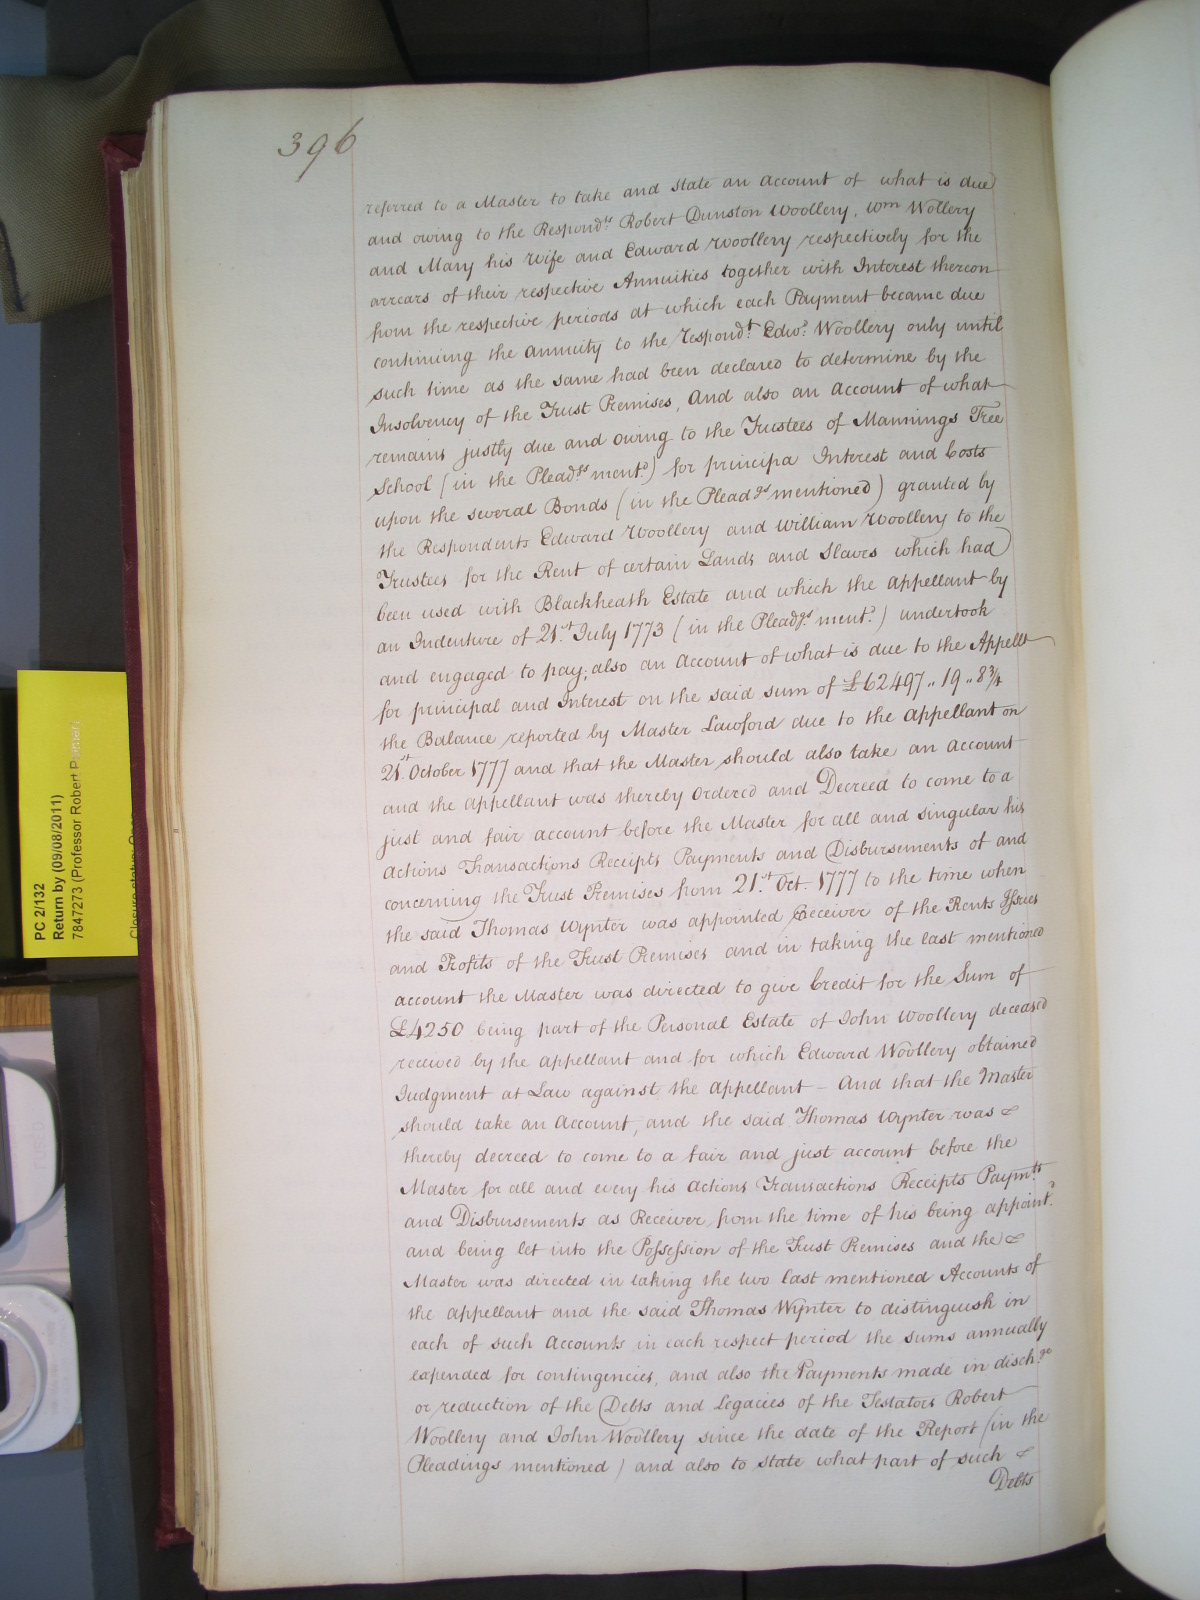 396
referred to a Master to take and state an account of what is due
and owing to the Respond.ts Robert Dunston Woollery, Wm Wollery
and Mary his Wife and Edward Woollery respectively for the
arrears of their respective Annuities together with Interest thereon
from the respective periods at which each Payment became due
continuing the annuity to the respond.t Edwd. Woollery only until
such time as the same had been declared to determine by the
Insolvency of the Trust Premises, And also an account of what
remains justly due and owing to the Trustees of Mannings Free
School (in the Plead.gs ment.d) for principa Interest and Costs
upon the several Bonds (in the Plead.gs mentioned) granted by
the Respondents Edward Woollery and William Woollery to the
Trustees for the Rent of certain Lands and Slaves which had
been used with Blackheath Estate and which the appellant by
an Indenture of 21.st July 1773 (in the Plead.gs ment.d) undertook
and engaged to pay; also an account of what is due to the Appellt
for principal and Interest on the said sum of £62497,, 19,, 8¾
the Balance reported by Master Lawford due to the appellant on
21.st October 1777 and that the Master should also take an account
and the appellant was thereby Ordered and Decreed to come to a
just and fair account before the Master for all and singular his
actions Transactions Receipts Payments and Disbursements of and
concerning the Trust Premises from 21.st Oct. 1777 to the time when
the said Thomas Wynter was appointed Receiver of the Rents Issues
and Profits of the Trust Premises and in taking the last mentioned
account the Master was directed to give Credit for the Sum of
£4250 being part of the Personal Estate of John Woollery deceased
received by the appellant and for which Edward Woollery obtained
Judgment at Law against the appellant – And that the Master
should take an Account, and the said Thomas Wynter was
thereby decreed to come to a fair and just account before the
Master for all and every his actions Transactions Receipts Paym.ts
and Disbursements as Receiver from the time of his being appoint.d
and being let into the Possession of the Trust Premises and the
Master was directed in taking the two last mentioned Accounts of
the appellant and the said Thomas Wynter to distinguish in
each of such Accounts in each respect period the sums annually
expended for contingencies, and also the Payments made in disch.ge
or reduction of the Debts and Legacies of the Testators Robert
Woollery and John Woollery since the date of the Report (in the
Pleadings mentioned) and also to state what part of such
Debts
PC 2/132
Return by (09/08/2011)
7847273 (Professor Robert